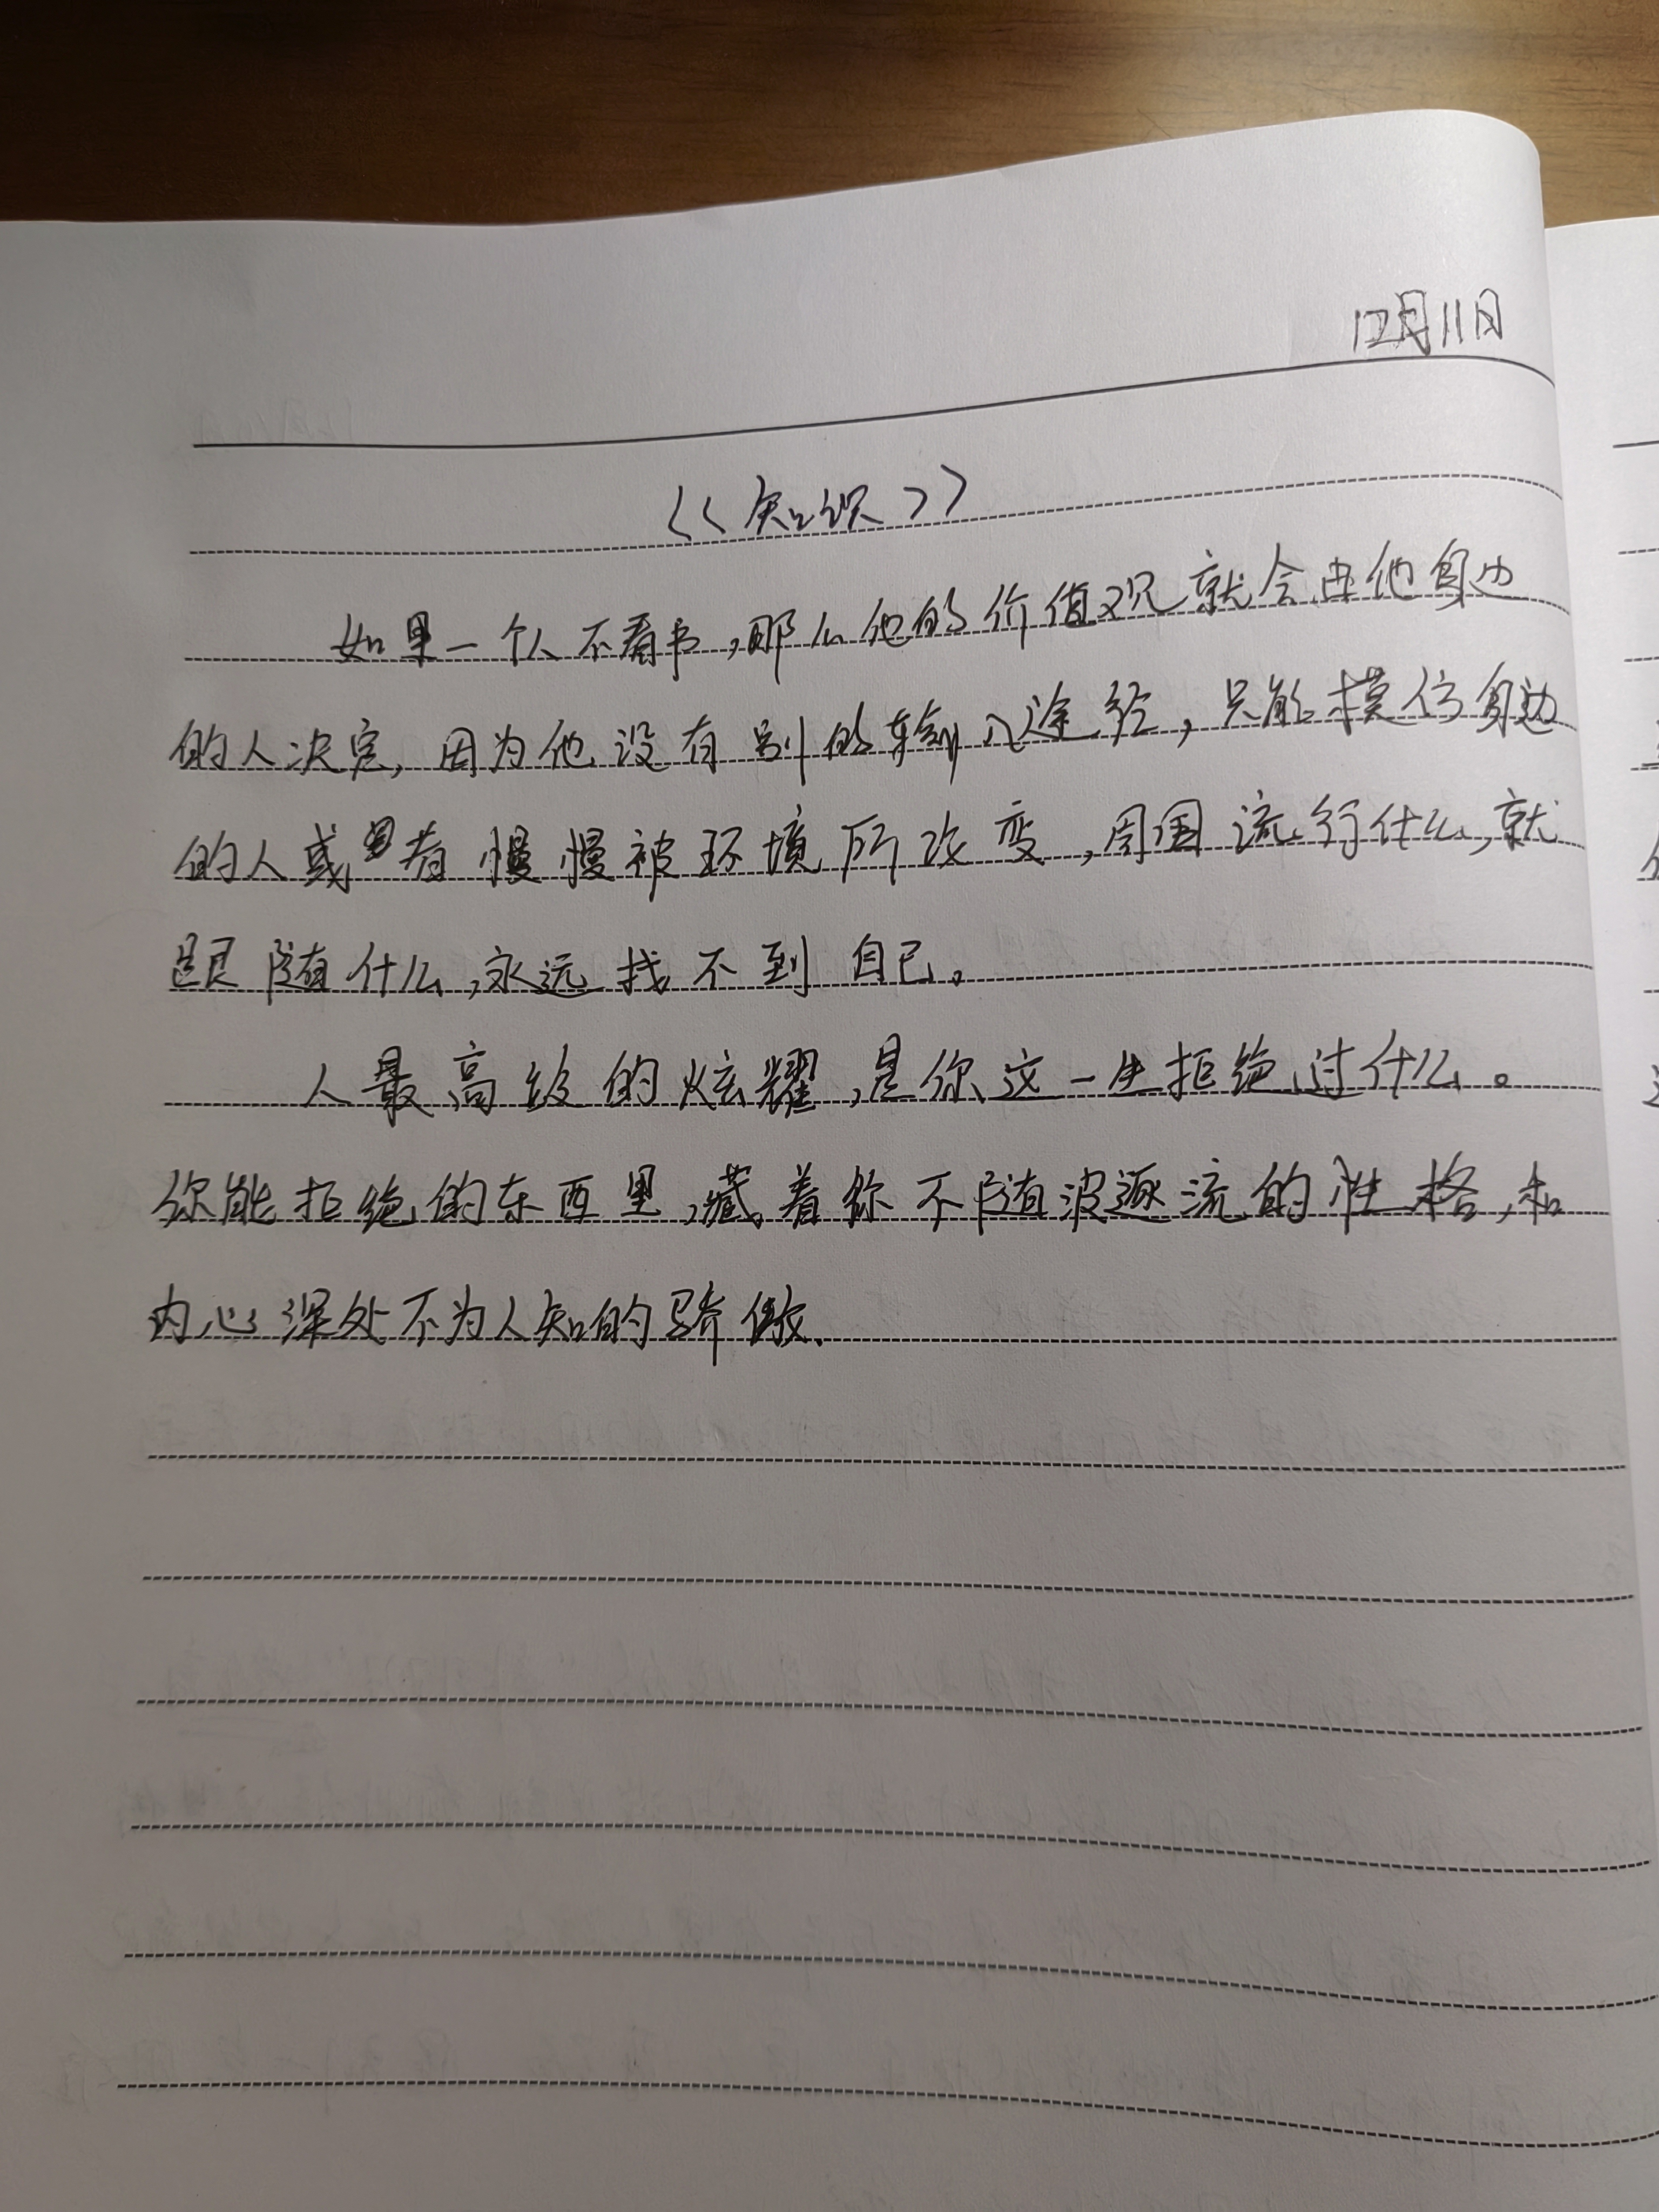 12月11日
《知识》
如果一个人不看书,那么他的价值观就会由他身边
的人决定,因为他没有别的输入途经,只能模仿身边
的人或者慢慢被环境所改变,周围流行什么,就
跟随什么,永远找不到自己。
人最高级的炫耀,是你这一生拒绝过什么。
你能拒绝的东西里,藏着你不随波逐流的性格,和
内心深处不为人知的骄傲.